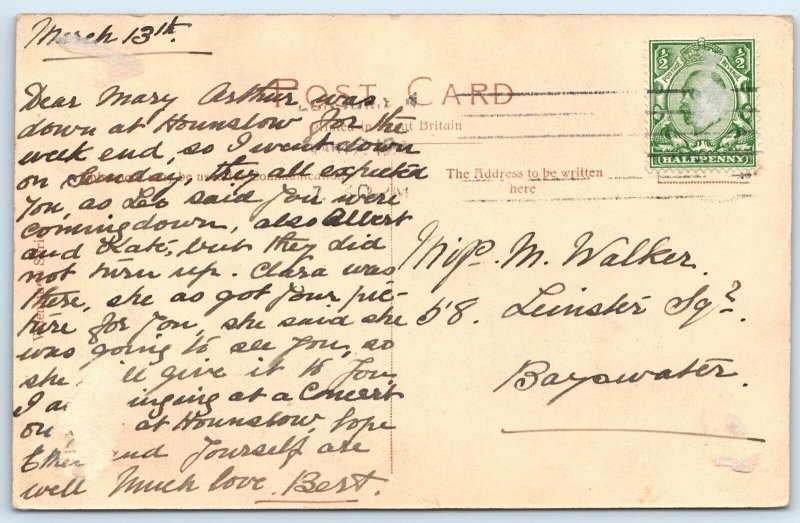 March 13th.
POST CARD
Britain
The Address to be written
here
HALFPENNY
½ ½
Dear Mary Arthur was
down at Hounslow for the
week end, so I went down
on Sunday, they all expected
you, as Leo said you were
coming down, also Albert
and Kate, but they did
not turn up. Clara was
there, she as got your pic-
ture for you, she said she
was going to see you, so
she ll give it to you,
I a inging at a Concert
on at Hounslow, hope
and yourself are
well Much love. Bert.
M. Walker.
58. Leinster Sqr.
Bayswater.